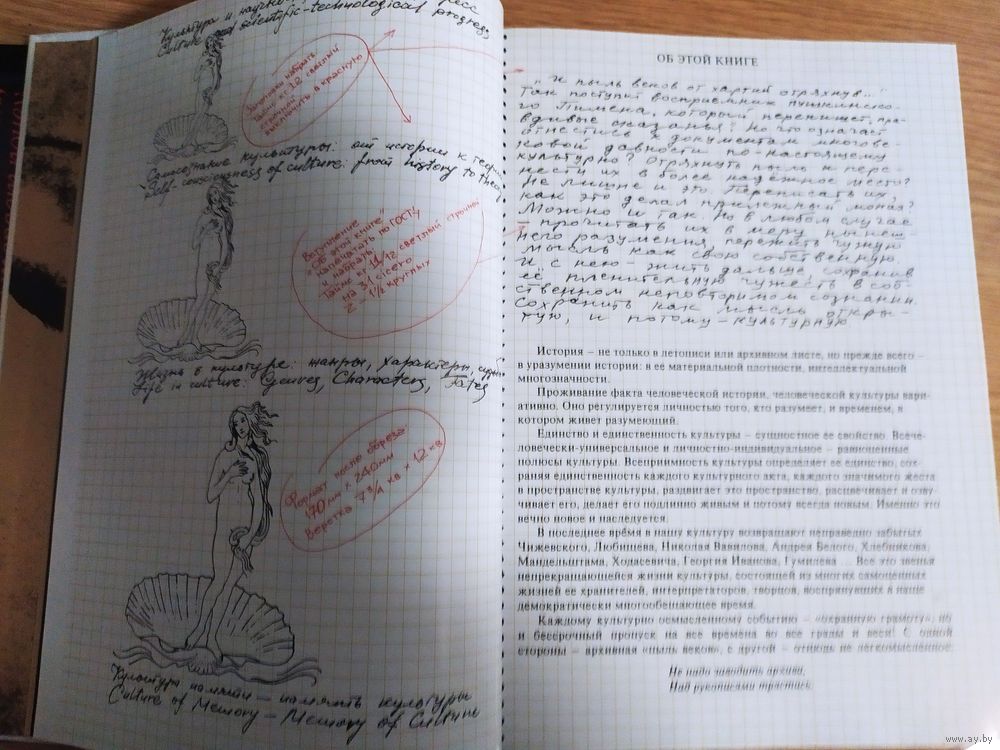 Культура и научно
Culture and scientific-technological progress
Заголовки набрать
Таймс кг. 12 светлый
строчной
выключить в красную
Самосознание культуры: от истории к
Self-consciousness of culture: from history to
Вступление
"Об этой книге"
напечатать по ГОСТу
и набрать:
Таймс кг 11/12 светлый строчной
на 31 цицеро
2 – 1½ круглых
Жизнь в культуре: жанры, характеры,
Life in culture: Genres, Characters, Fates
Формат после обреза
170мм × 240мм
Верстка 7¾ кв × 12 кв
Культура памяти – память культуры
Culture of Memory – Memory of Culture
ОБ ЭТОЙ КНИГЕ
„И пыль веков от хартий отряхнув..."
Так поступит восприемник пушкинско-
го Пимена, который перепишет, пра-
вдивые сказанья? Но что означает
отнестись к документам многове-
ковой давности по-настоящему
культурно? Отряхнуть пыль и пере-
нести их в более надежное место?
Не лишне и это. Переписать их,
как это делал прилежный монах?
Можно и так. Но в любом случае
– прочитать их в меру нынеш-
него разумения, пережить чужую
мысль как свою собственную.
И с нею – жить дальше, сохранив
её пленительную чужесть в соб-
ственном неповторимом сознании.
Сохранить как мысль откры-
тую, и потому – культурную
История – не только в летописи или архивном листе, но прежде всего –
в уразумении истории: в ее материальной плотности, интеллектуальной
многозначности.
Проживание факта человеческой истории, человеческой культуры вари-
ативно. Оно регулируется личностью того, кто разумеет, и временем, в
котором живет разумеющий.
Единство и единственность культуры – сущностное ее свойство. Всече-
ловечески-универсальное и личностно-индивидуальное – равноценные
полюсы культуры. Всеприимность культуры определяет ее единство, сох-
раняя единственность каждого культурного акта, каждого значимого жеста
в пространстве культуры, раздвигает это пространство, расцвечивает и озву-
чивает его, делает его подлинно живым и потому всегда новым. Именно это
вечно новое и наследуется.
В последнее время в нашу культуру возвращают неправедно забытых
Чижевского, Любищева, Николая Вавилова, Андрея Белого, Хлебникова,
Мандельштама, Ходасевича, Георгия Иванова, Гумилева ... Все это звенья
непрекращающейся жизни культуры, состоящей из многих самоценных
жизней ее хранителей, интерпретаторов, творцов, воспрянувших в наше
демократически многообещающее время.
Каждому культурно осмысленному событию – «охранную грамоту», но
и бессрочный пропуск на все времена во все грады и веси! С одной
стороны – архивная «пыль веков», с другой – отнюдь не легкомысленное:
Не надо заводить архива,
Над рукописями трястись.
www.ay.by